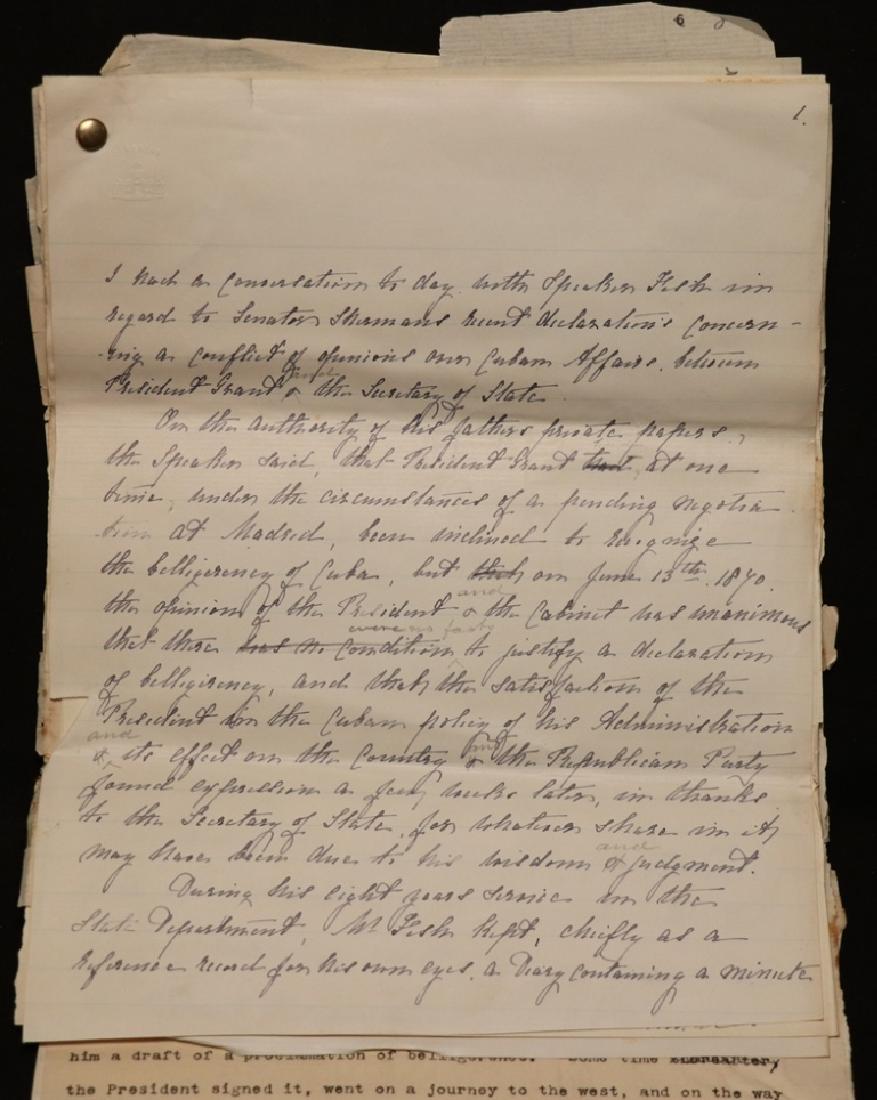 6
1.
I had a conversation to day with Speaker Fish in
regard to Senator Shermans recent declarations concern-
-ing a conflict of opinions over Cuban Affairs between
and
President Grant & the Secretary of State.
On the authority of his fathers private papers,
the Speaker said, that President Grant had, at one
time, under the circumstances of a pending negotia
tion at Madrid, been inclined to recognize
the belligerency of Cuba, but that on June 13th. 1870.
and
the opinion of the President & the Cabinet was unanimous
were no facts
that there was no condition to justify a declaration
of belligerency, and that the satisfaction of the
President in the Cuban policy of his Administration
and
and
& its effect on the Country & the Republican Party
found expression a few weeks later, in thanks
to the Secretary of State, for whatever share in it
and
may have been due to his wisdom & judgment.
During his eight years service in the
State Department, Mr Fish kept, chiefly as a
reference record for his own eyes, a Diary containing a minute
him a draft of a proclamation of belligerence. Some time thereafter,
the President signed it, went on a journey to the west, and on the way